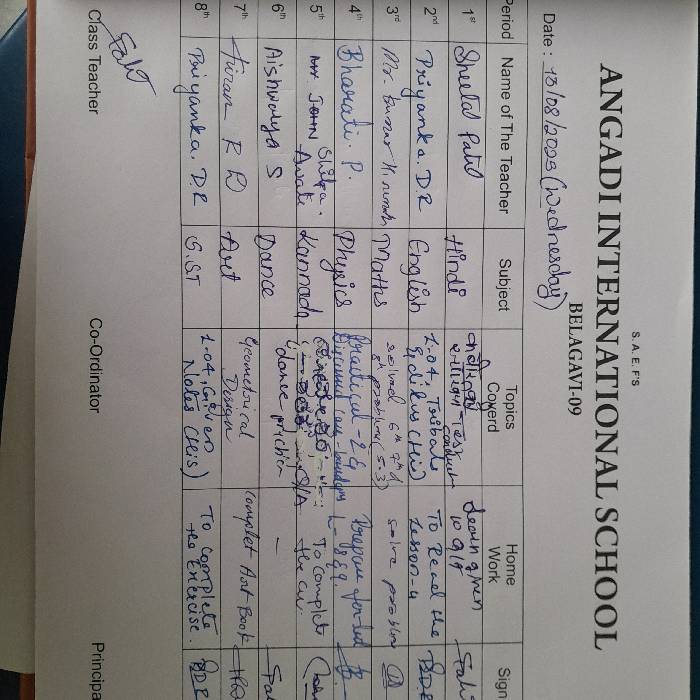 S.A.E.F'S
ANGADI INTERNATIONAL SCHOOL
BELAGAVI-09
Date: 13/08/2025 (Wednesday)
Period Name of The Teacher Subject Topics Coverd Home Work Sign
1st Sheetal Patil Hindi Test conduct Learn given 10 Q/A
2nd Priyanka. D.R English 2.04. Tribals, Dikus (His) To Read the Lesson-4 PDR
3rd Mr. Kumar Maths solved 6th 7th 8th problem (5.3) solve problem
4th Bharati. P. Physics Practical-2 L-8 & 9.
5th Mr JOHN Shilpa. Avati Kannada Q/A To complet the cw.
6th Aishwarya S Dance dance practice -
7th Kiran R D Art Geometrical Design Complet Art Book
8th Priyanka. D.R S.ST 2.04, Given Notes (His) To Complete the Exercise. PDR
Class Teacher Co-Ordinator Principa